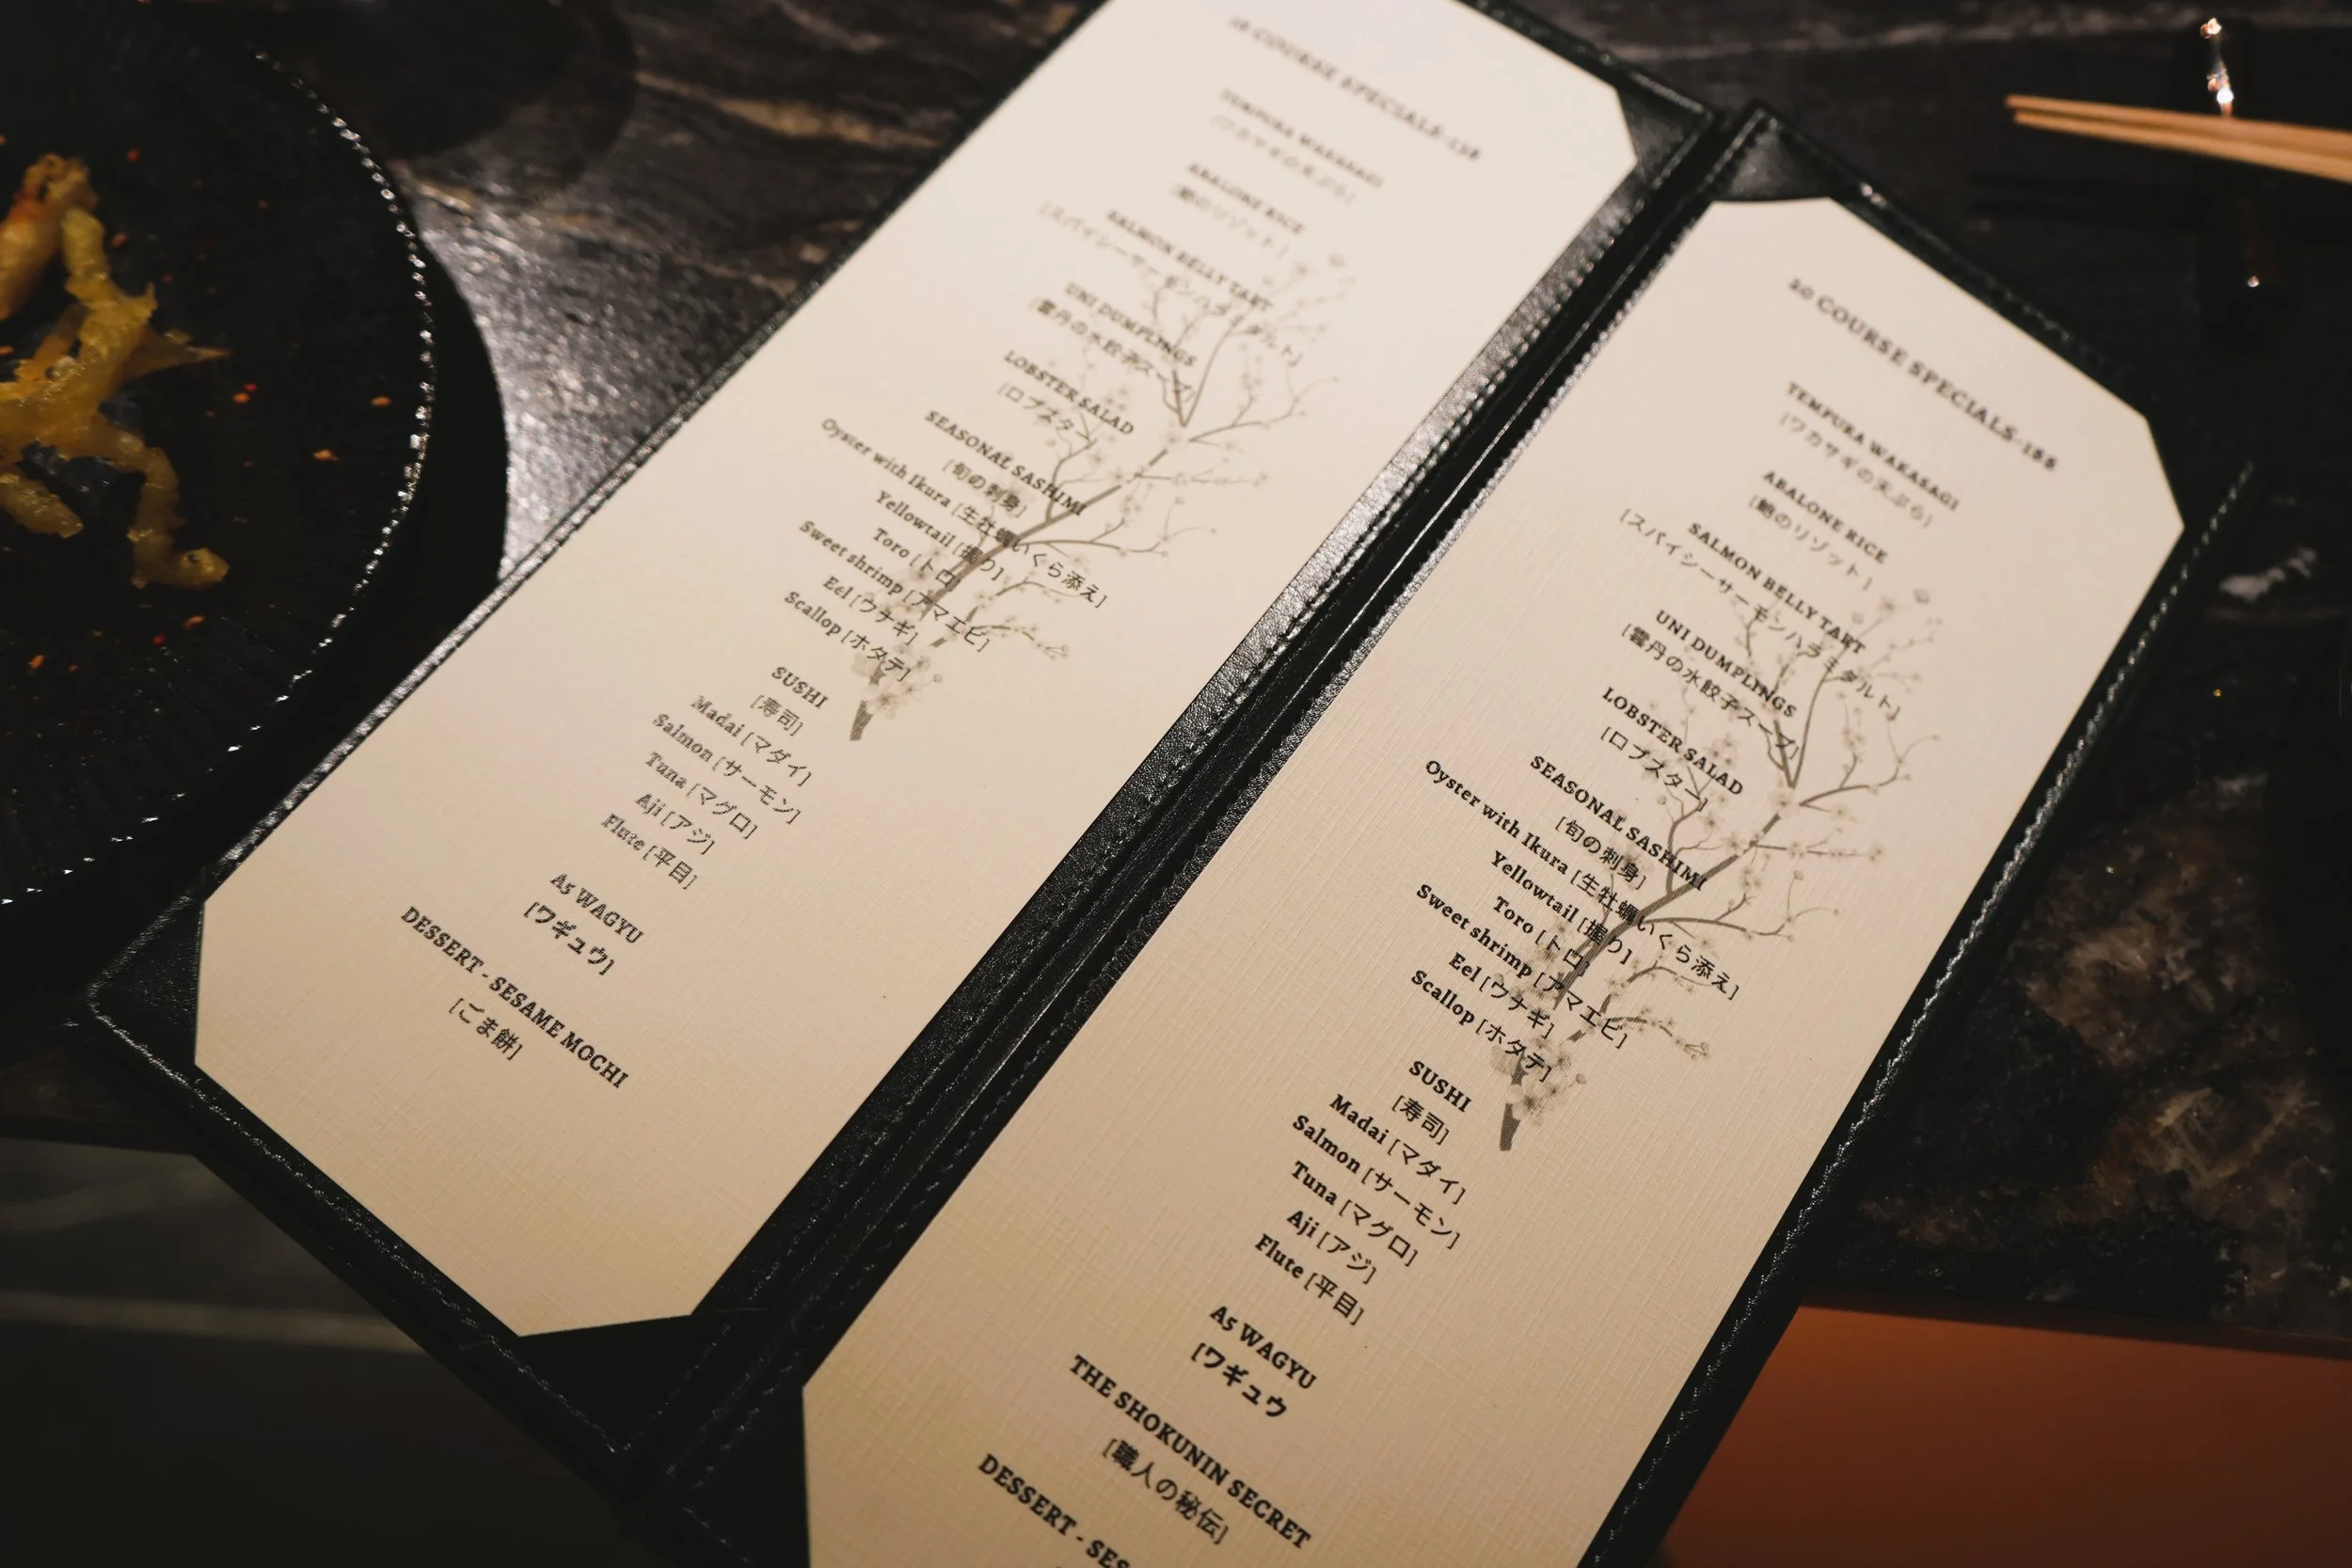 COURSE SPECIALS-138
TEMPURA WAKASAGI
[ワカサギの天ぷら]
ABALONE RICE
[鮑のリゾット]
SALMON BELLY TART
[スパイシーサーモンハラミタルト]
UNI DUMPLINGS
[雲丹の水餃子スープ]
LOBSTER SALAD
[ロブスター]
SEASONAL SASHIMI
[旬の刺身]
Oyster with Ikura [生牡蠣いくら添え]
Yellowtail [握り]
Toro [トロ]
Sweet shrimp [アマエビ]
Eel [ウナギ]
Scallop [ホタテ]
SUSHI
[寿司]
Madai [マダイ]
Salmon [サーモン]
Tuna [マグロ]
Aji [アジ]
Flute [平目]
A5 WAGYU
[ワギュウ]
DESSERT - SESAME MOCHI
[ごま餅]
20 COURSE SPECIALS-188
TEMPURA WAKASAGI
[ワカサギの天ぷら]
ABALONE RICE
[鮑のリゾット]
SALMON BELLY TART
[スパイシーサーモンハラミタルト]
UNI DUMPLINGS
[雲丹の水餃子スープ]
LOBSTER SALAD
[ロブスター]
SEASONAL SASHIMI
[旬の刺身]
Oyster with Ikura [生牡蠣いくら添え]
Yellowtail [握り]
Toro [トロ]
Sweet shrimp [アマエビ]
Eel [ウナギ]
Scallop [ホタテ]
SUSHI
[寿司]
Madai [マダイ]
Salmon [サーモン]
Tuna [マグロ]
Aji [アジ]
Flute [平目]
A5 WAGYU
[ワギュウ
THE SHOKUNIN SECRET
[職人の秘伝]
DESSERT - SES